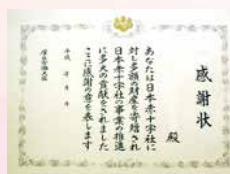 感謝状
殿
あなたは日本赤十字社に
対し多額の財産を増嘱され
日本赤十字社の事業の推進
に多大の貢献をされました
ここに感謝の意を表します
平成 年 月 日
厚生労働大臣